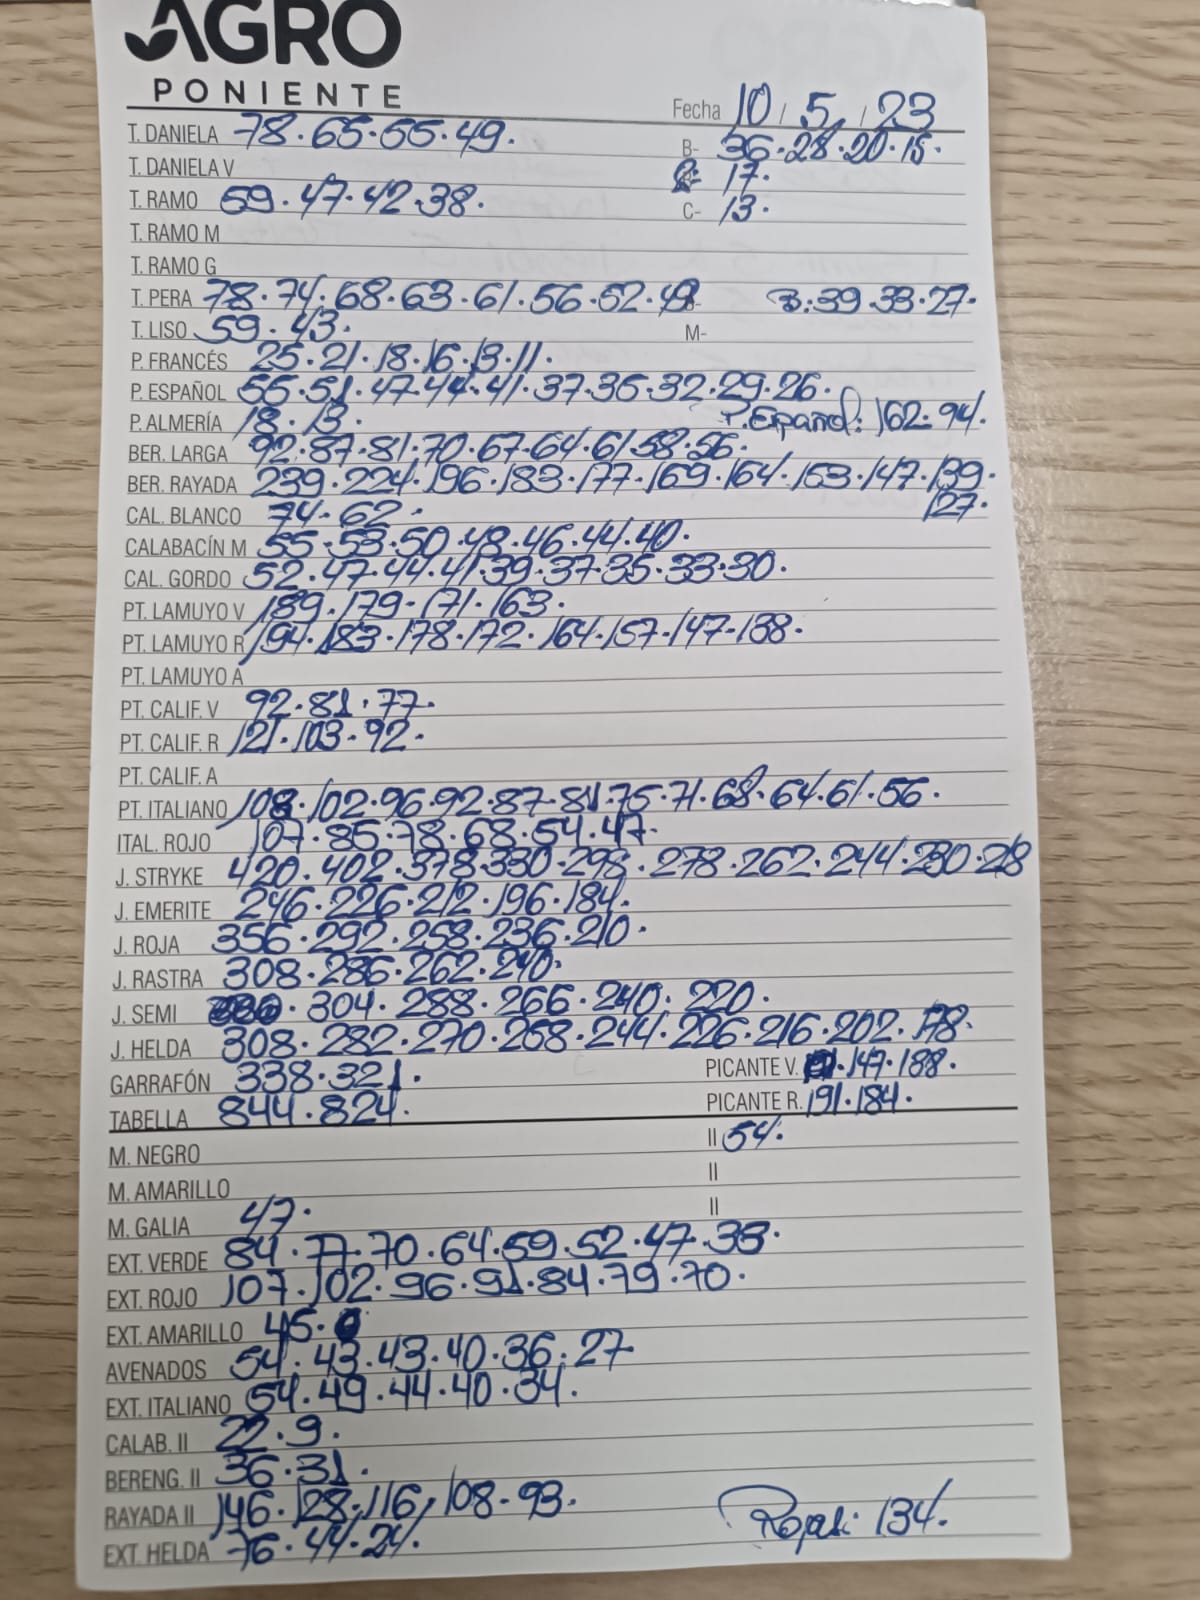 AGRO
PONIENTE
Fecha 10 / 5 / 23
T. DANIELA 78.65.55.49. B- 36.28.20.15.
T. DANIELA V 17.
T. RAMO 59.47.42.38. C- 13.
T. RAMO M
T. RAMO G
T. PERA 78.74.68.63.61.56.52.49 B:39.33.27.
T. LISO 59.43. M-
P. FRANCÉS 25.21.18.16.13.11.
P. ESPAÑOL 55.51.47.44.41.37.35.32.29.26.
P. ALMERÍA 18.13. P.Español: 162.94.
BER. LARGA 92.87.81.70.67.64.61.58.56.
BER. RAYADA 239.224.196.183.177.169.164.153.147.139.
127.
CAL. BLANCO 74.62.
CALABACÍN M 55.53.50.48.46.44.40.
CAL. GORDO 52.47.44.41.39.37.35.33.30.
PT. LAMUYO V 189.179.171.163.
PT. LAMUYO R 194.183.178.172.164.157.147.138.
PT. LAMUYO A
PT. CALIF. V 92.81.77.
PT. CALIF. R 121.103.92.
PT. CALIF. A
PT. ITALIANO 108.102.96.92.87.81.75.71.68.64.61.56.
ITAL. ROJO 107.85.78.68.54.47.
J. STRYKE 420.402.378.330.298.278.262.244.230.218
J. EMERITE 246.226.212.196.184.
J. ROJA 356.292.258.236.210.
J. RASTRA 308.286.262.240.
J. SEMI 304.288.266.240.220.
J. HELDA 308.282.270.258.244.226.216.202.178.
GARRAFÓN 338.321. PICANTE V. 147.188.
TABELLA 844.824. PICANTE R. 191.184.
M. NEGRO II 54.
M. AMARILLO II
M. GALIA 47. II
EXT. VERDE 84.77.70.64.59.52.47.33.
EXT. ROJO 107.102.96.91.84.79.70.
EXT. AMARILLO 45.
AVENADOS 54.43.43.40.36.27
EXT. ITALIANO 54.49.44.40.34.
CALAB. II 22.9.
BERENG. II 36.31.
RAYADA II 146.128.116.108.93.
EXT. HELDA 76.44.24. Rojas: 134.